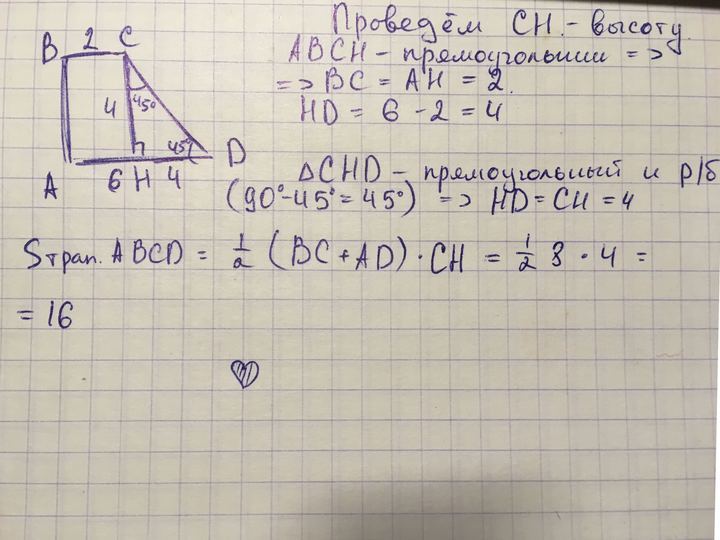 Проведём CH - высоту.
ABCH - прямоугольник =>
=> BC = AH = 2.
HD = 6 - 2 = 4
B 2 C
4 45° 45°
A 6 H 4 D
ΔCHD - прямоугольный и р/б
(90°-45°=45°) => HD = CH = 4
Sтрап. ABCD = 1/2 (BC + AD) · CH = 1/2 8 · 4 =
= 16